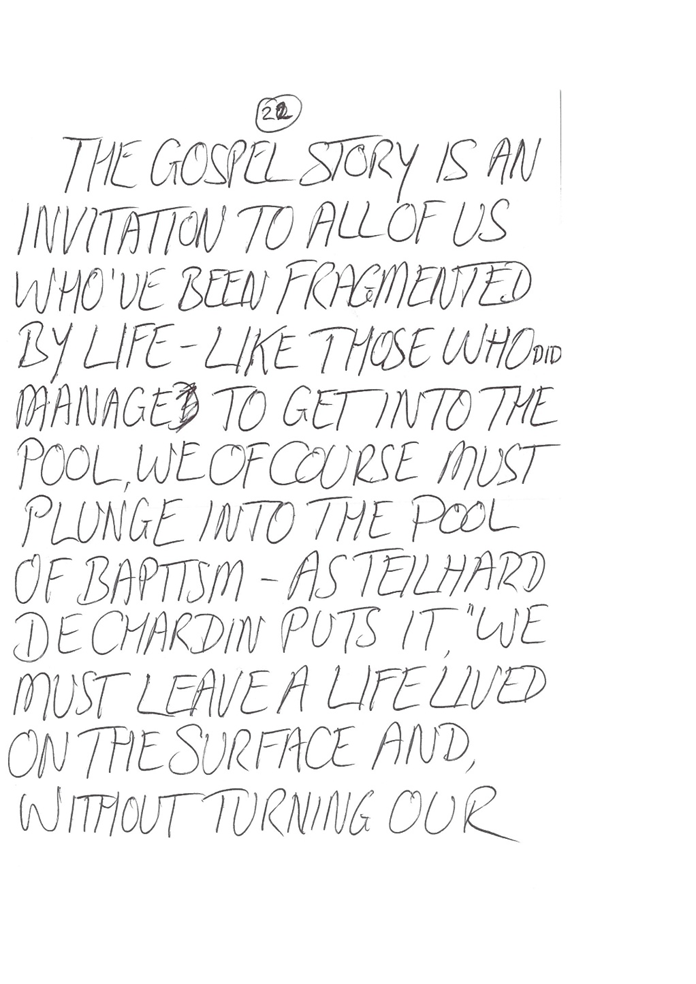 22
THE GOSPEL STORY IS AN
INVITATION TO ALL OF US
WHO'VE BEEN FRAGMENTED
BY LIFE - LIKE THOSE WHO DID
MANAGE TO GET INTO THE
POOL, WE OF COURSE MUST
PLUNGE INTO THE POOL
OF BAPTISM - AS TEILHARD
DE CHARDIN PUTS IT, "WE
MUST LEAVE A LIFE LIVED
ON THE SURFACE AND,
WITHOUT TURNING OUR